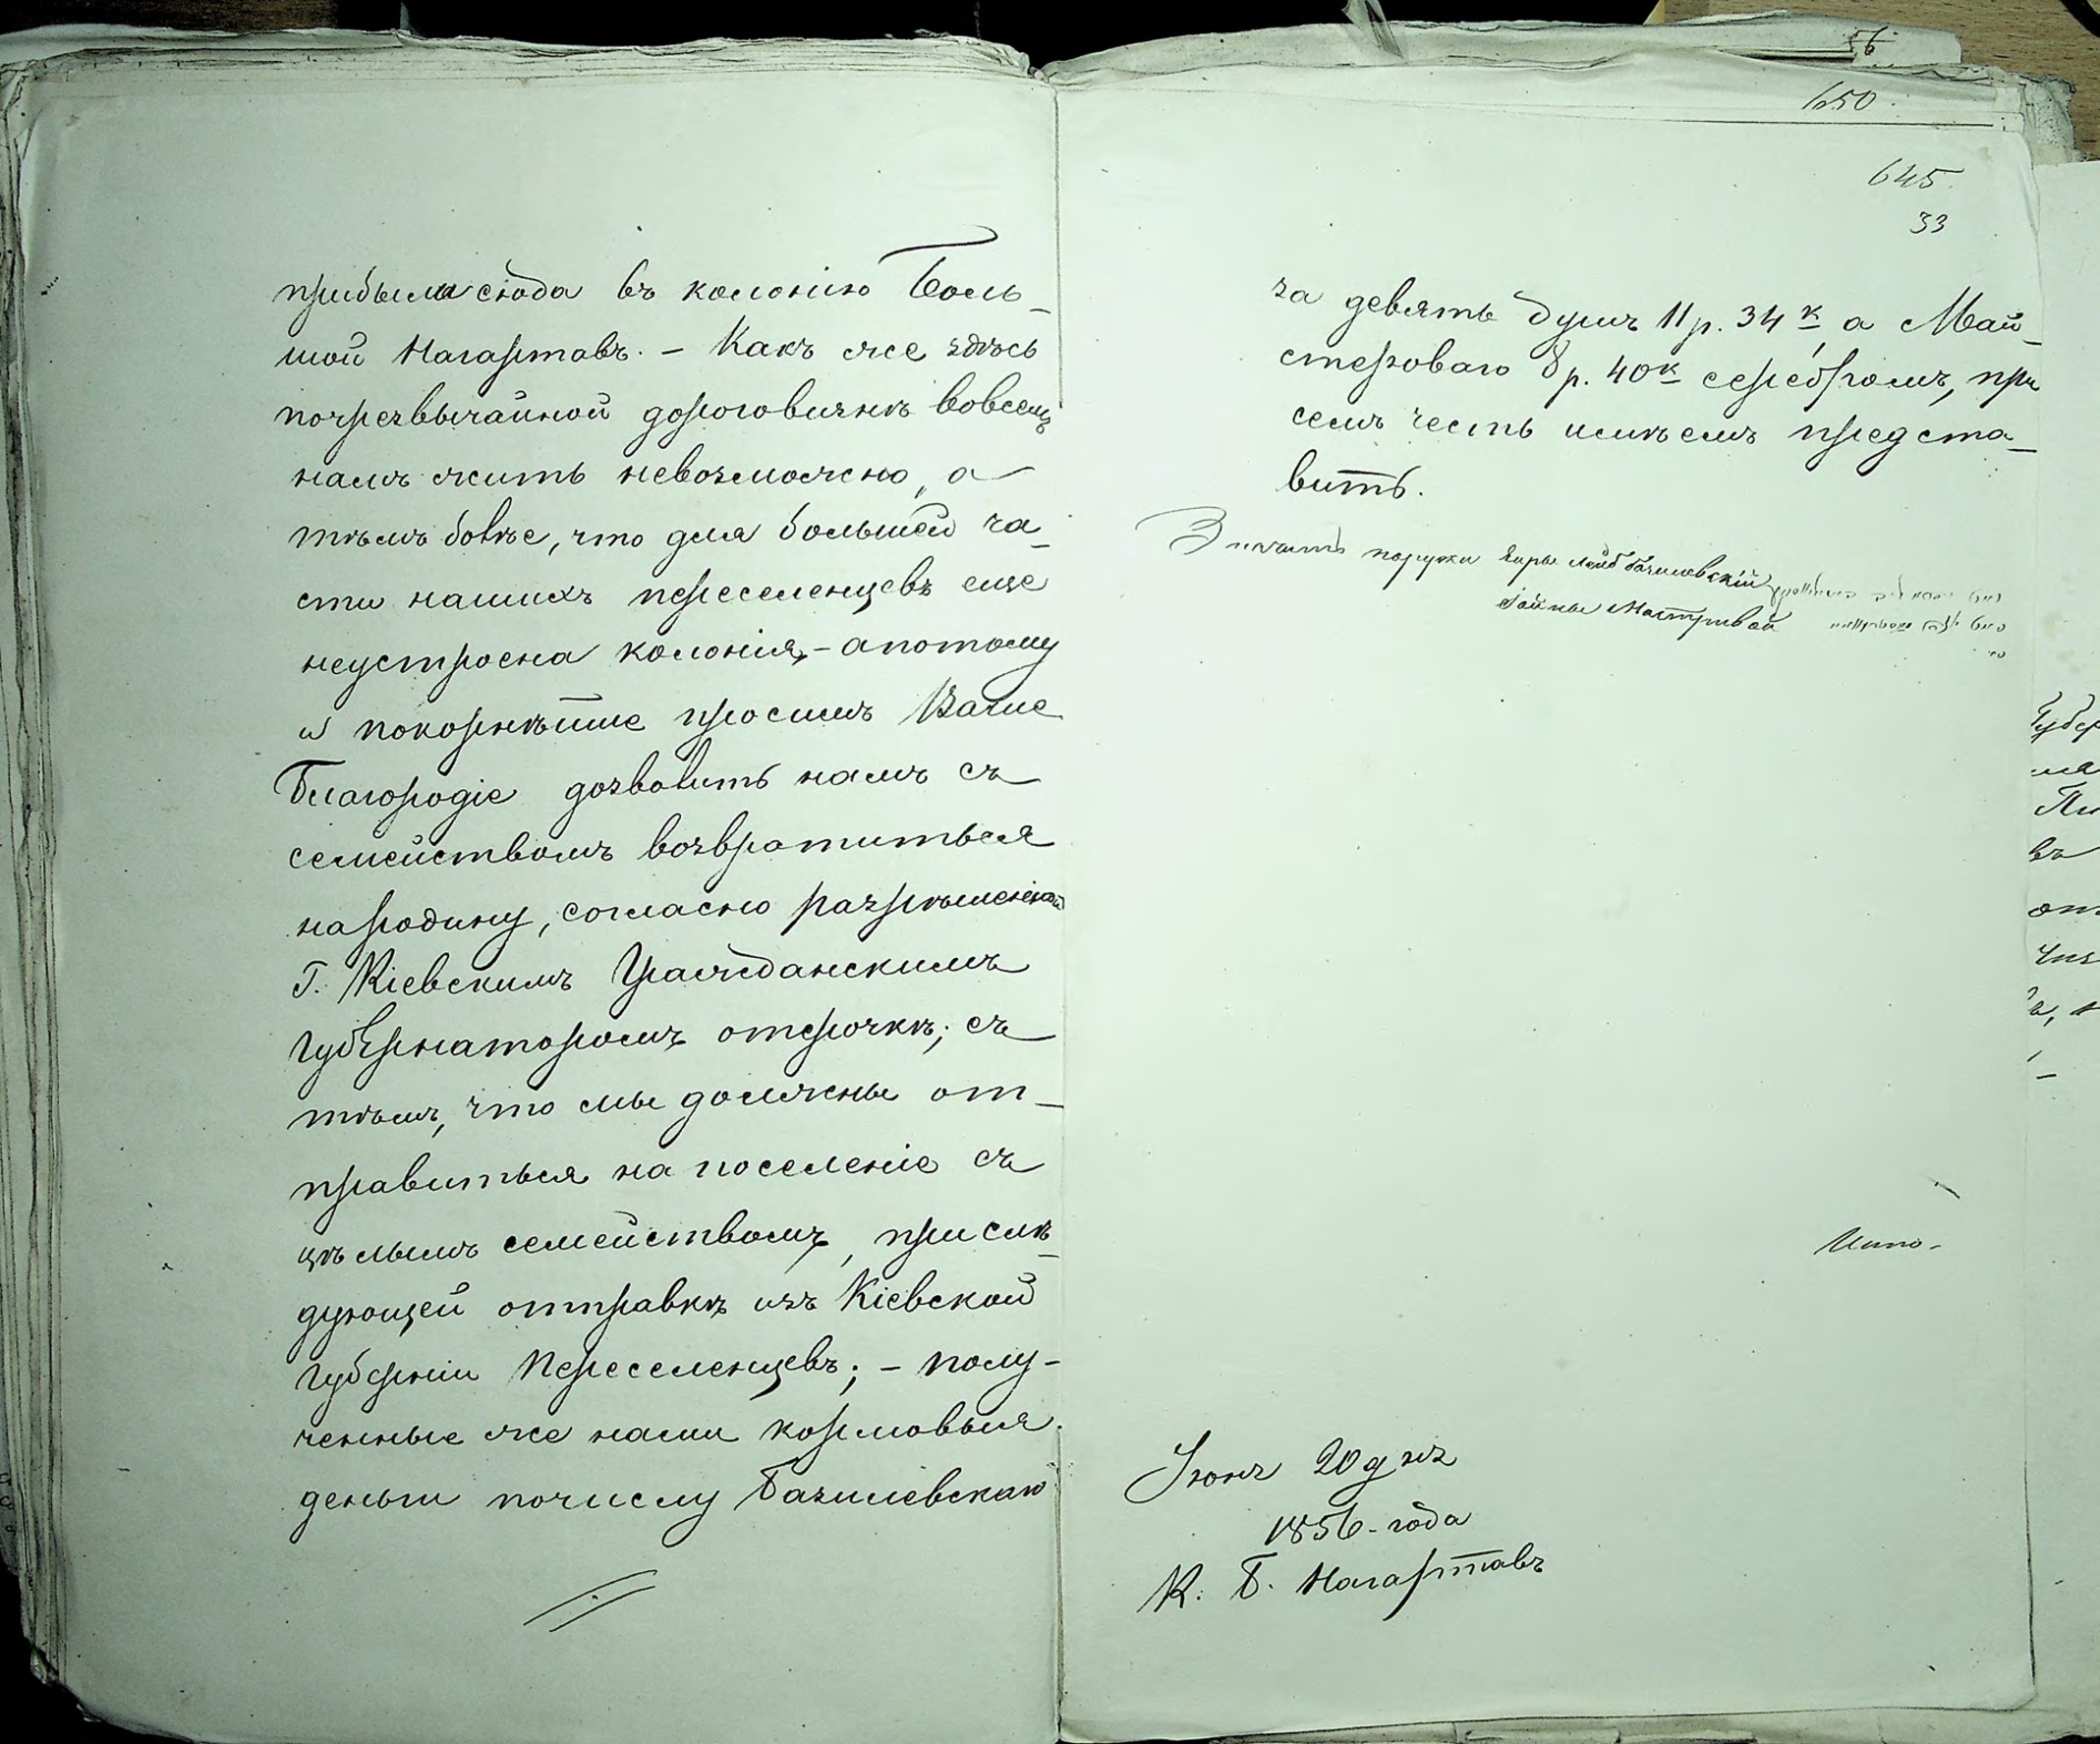 прибыли сюда въ колонію Боль-
шой Нагартавъ. – Какъ же здѣсь
почрезвычайной дороговизнѣ вовсемъ
намъ жить невозможно, а
тѣмъ болѣе, что для большей ча-
сти нашихъ переселенцевъ еще
неустроена колонія, – апотому
и покорнѣйше просимъ Ваше
Благородіе дозволить намъ съ
семействомъ возвратиться
народину, согласно разрѣшенной
Г. Кіевскимъ Гражданскимъ
Губернаторомъ отсрочкѣ; съ
тѣмъ, что мы должны от-
правиться на поселеніе съ
цѣлымъ семействомъ, при слѣ-
дующей отправкѣ изъ Кіевской
Губерніи Переселенцевъ; – полу-
ченные же нами кормовыя
деньги почислу Базилевскаго
56
650.
645.
33
за девять душъ 11 р. 34 к а Май-
стероваго 8 р. 40 к серебромъ, при
семъ честь имѣемъ предста-
вить.
Базилевскій
Іюня 20 дня
1856 - года
К. Б. Нагартавъ